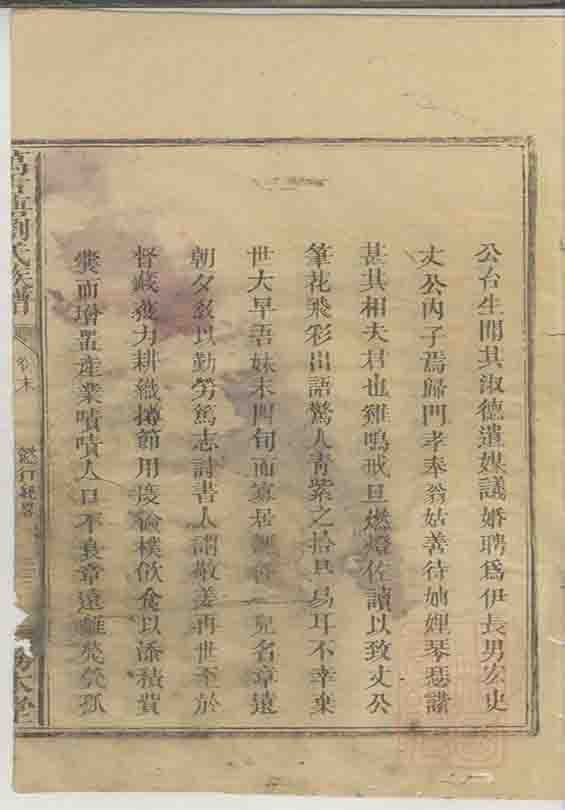 公台生聞其淑德遣媒議婚聘爲伊長男宏史
丈公內子焉歸門孝奉翁姑善待妯娌琴瑟諧
甚其相夫君也雞鳴戒旦燃燈佐讀以致丈公
筆花飛彩出語驚人青紫之拾旦易耳不幸棄
世大早吾妹未四旬而寡居 兒名章遠
朝夕教以勤勞篤志詩書人謂敬姜再世至於
督臧獲力耕織撙節用度儉樸飲食以添積貲
囊而增置產業嘖嘖人口不衰章遠雖煢煢孤
萬 劉氏族譜 卷末 懿行 木堂